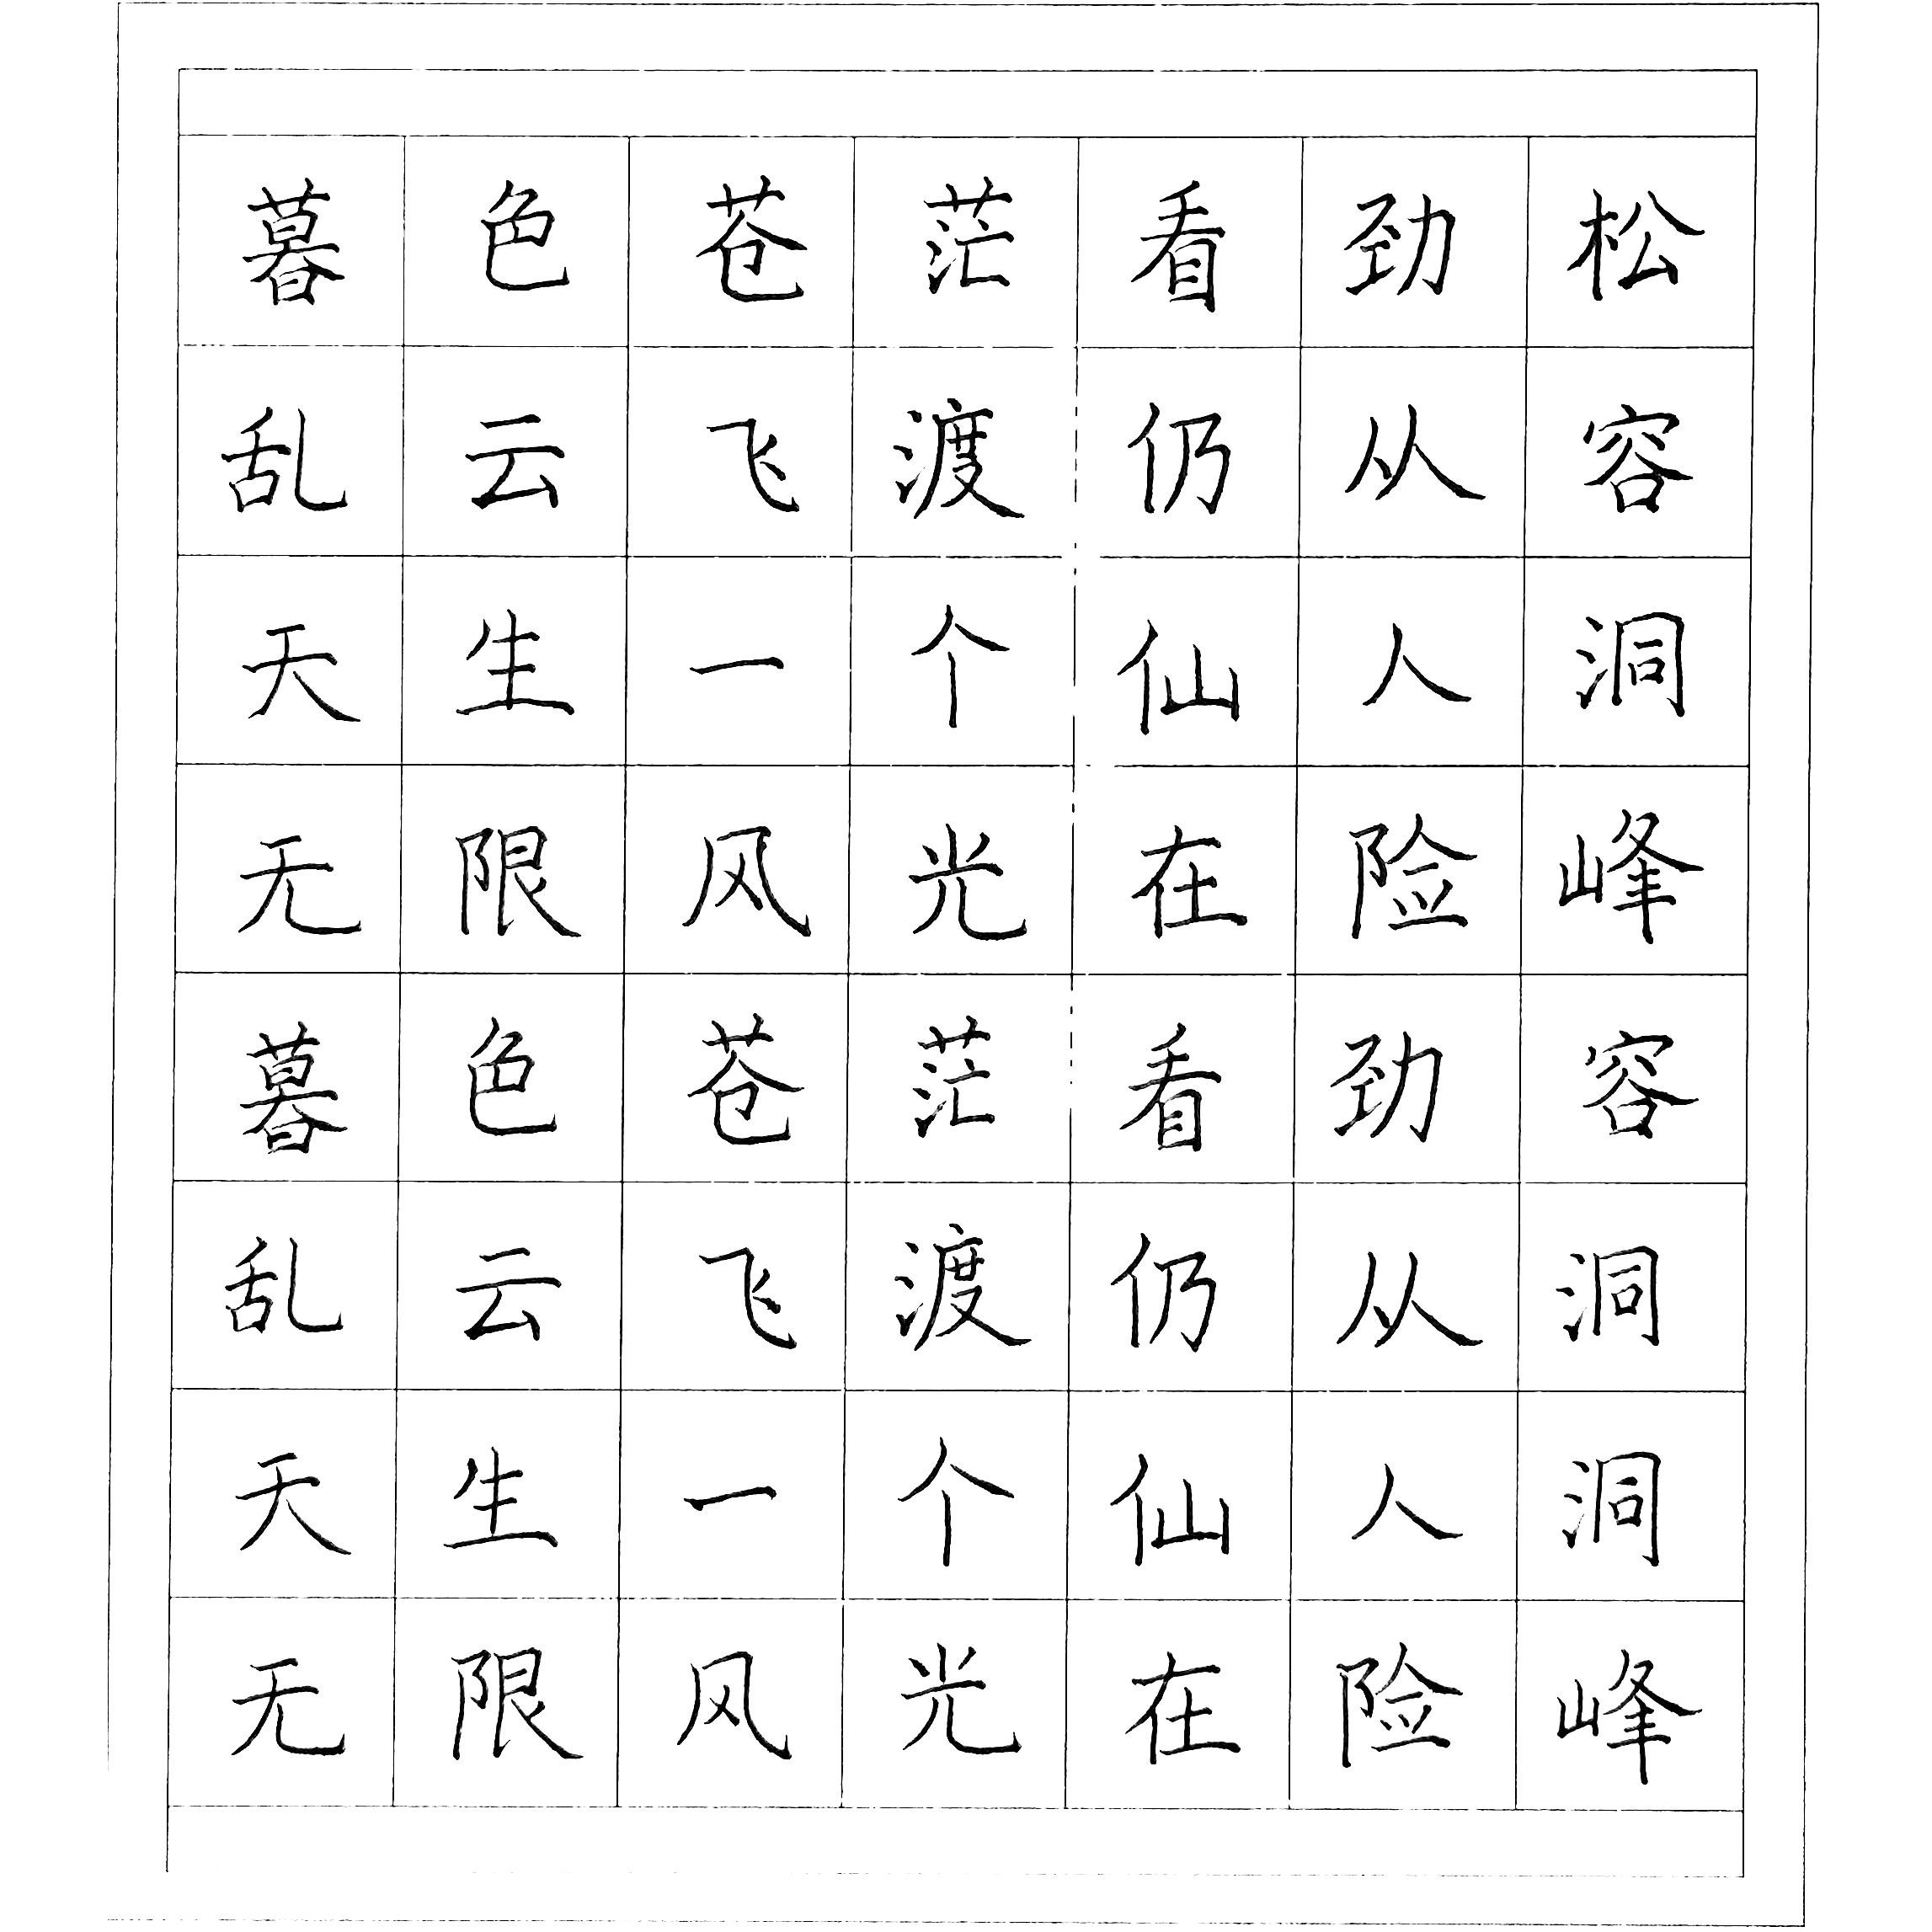 暮色苍茫看劲松
乱云飞渡仍从容
天生一个仙人洞
无限风光在险峰
暮色苍茫看劲容
乱云飞渡仍从洞
天生一个仙人洞
无限风光在险峰